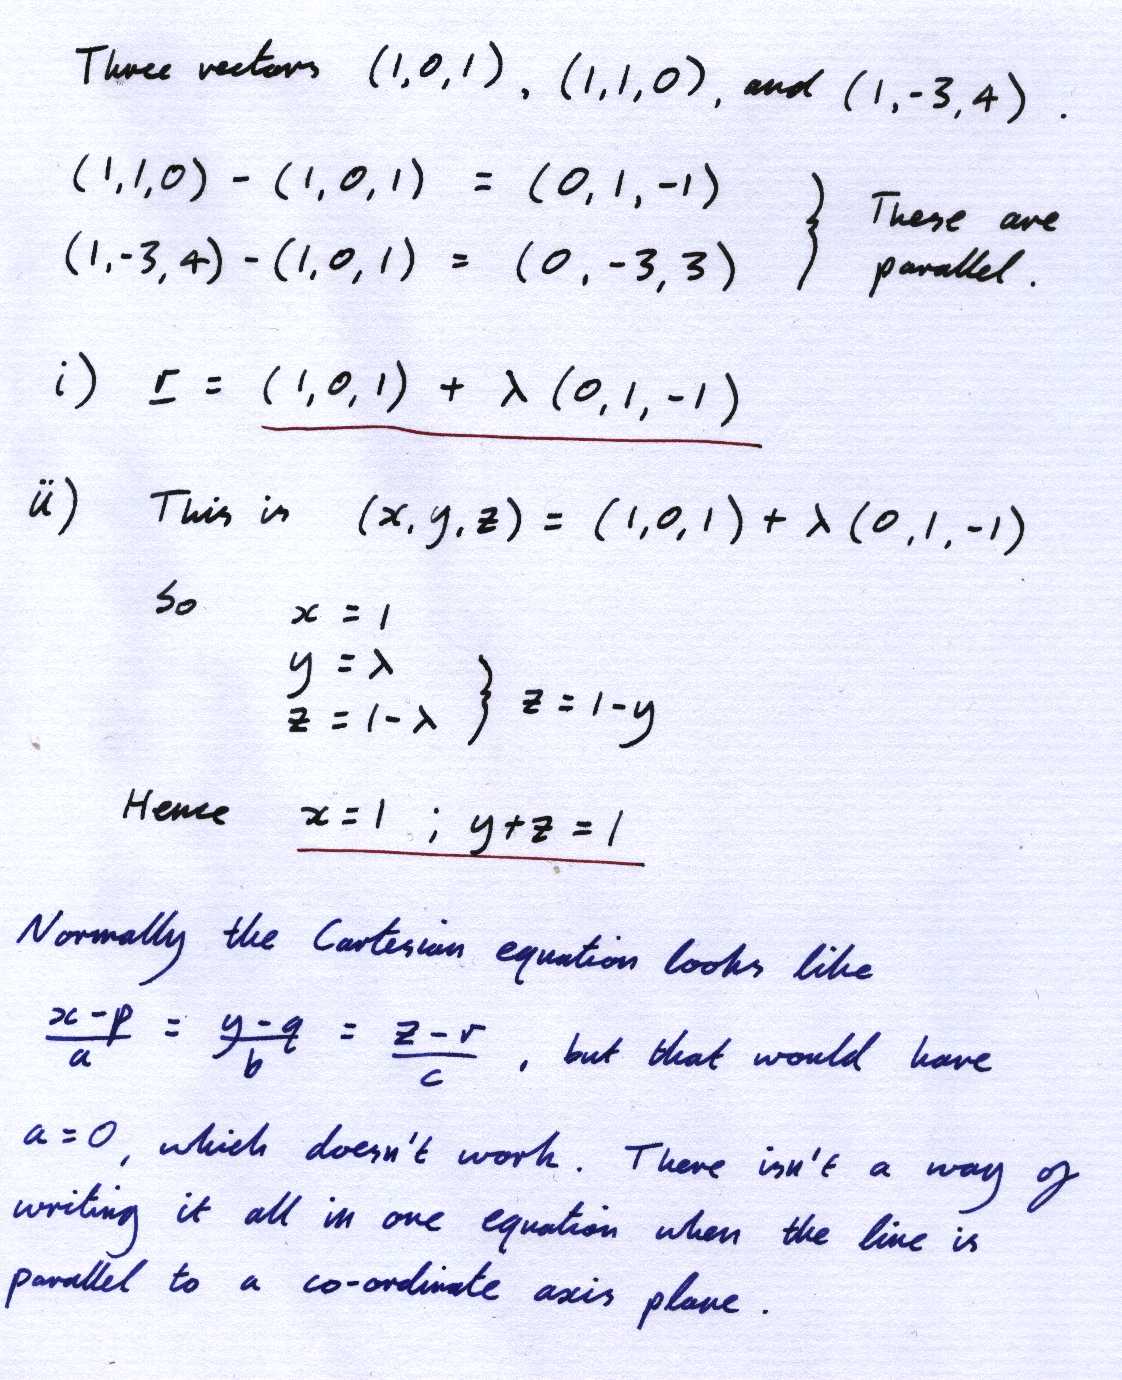 Three vectors (1,0,1), (1,1,0), and (1,-3,4).
(1,1,0) - (1,0,1) = (0,1,-1)
(1,-3,4) - (1,0,1) = (0,-3,3) } These are parallel.
i) r = (1,0,1) + λ(0,1,-1)
ii) This is (x,y,z) = (1,0,1) + λ(0,1,-1)
So x = 1
y = λ
z = 1-λ } z = 1-y
Hence x=1 ; y+z = 1
Normally the Cartesian equation looks like
x-p/a = y-q/b = z-r/c , but that would have
a=0, which doesn't work. There isn't a way of
writing it all in one equation when the line is
parallel to a co-ordinate axis plane.